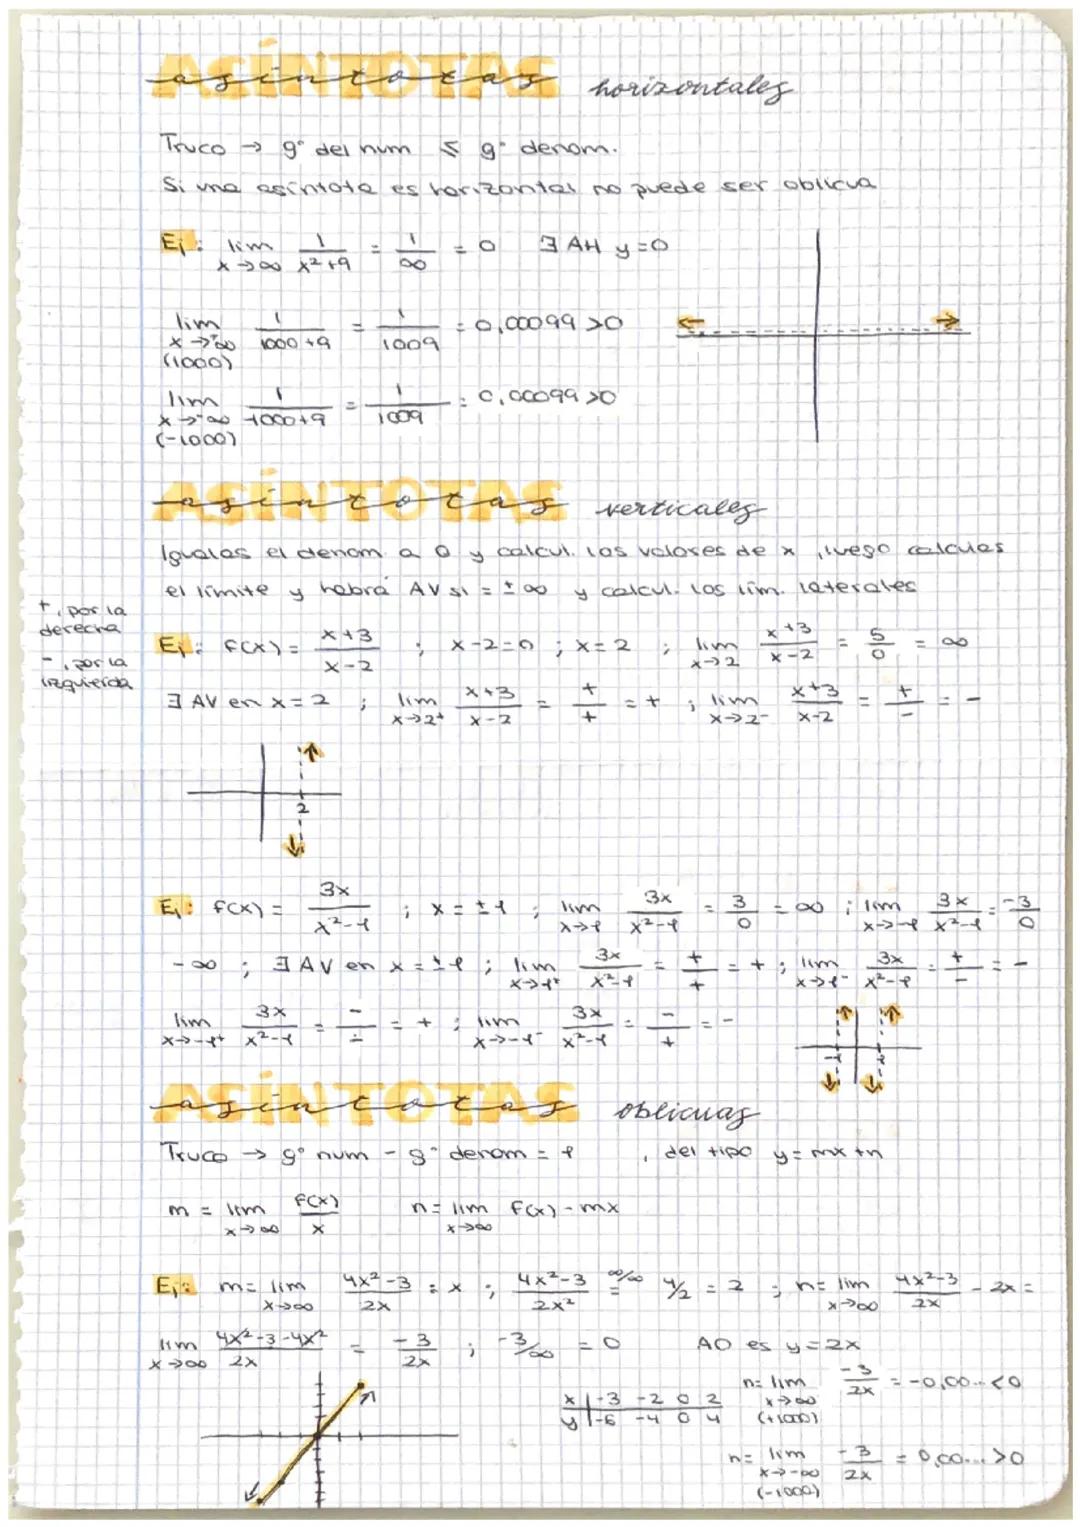 ASÍNTOTAS asíntotas horizontales
Truco → gº del num ≤ gº denom.
Si una asíntota es horizontal no puede ser oblicua
Ej: lim x→∞ 1/(x²+9) = 1/∞ = 0 ∃ AH y=0
lim x→+∞ (1000) 1/(1000+9) = 1/1009 = 0,00099 >0
lim x→-∞ (-1000) 1/(1000+9) = 1/1009 = 0,00099 >0
ASÍNTOTAS asíntotas verticales
Igualas el denom. a 0 y calcul. los valores de x, luego calculas
el límite y habrá AV si = ±∞ y calcul. los lím. laterales
+, por la derecha
-, por la izquierda
Ej: f(x) = (x+3)/(x-2) ; x-2=0 ; x=2 ; lim x→2 (x+3)/(x-2) = 5/0 = ∞
∃ AV en x=2 ; lim x→2⁺ (x+3)/(x-2) = +/+ = + ; lim x→2⁻ (x+3)/(x-2) = +/- = -
2
Ej: f(x) = 3x/(x²-1) ; x = ±1 ; lim x→1 3x/(x²-1) = 3/0 = ∞ ; lim x→-1 3x/(x²-1) = -3/0
-∞ ; ∃ AV en x = ±1 ; lim x→1⁺ 3x/(x²-1) = +/+ = + ; lim x→1⁻ 3x/(x²-1) = +/- = -
lim x→-1⁺ 3x/(x²-1) = -/- = + ; lim x→-1⁻ 3x/(x²-1) = -/+ = -
-1
ASÍNTOTAS asíntotas oblicuas
Truco → gº num - gº denom = 1 , del tipo y = mx+n
m = lim x→∞ f(x)/x n = lim x→∞ f(x) - mx
Ej: m = lim x→∞ (4x²-3)/2x : x ; (4x²-3)/2x² =^(∞/∞) 4/2 = 2 ; n = lim x→∞ (4x²-3)/2x - 2x =
lim x→∞ (4x²-3-4x²)/2x = -3/2x ; -3/∞ = 0 AO es y=2x
x | -3 -2 0 2
y | -6 -4 0 4
n = lim x→∞ (+1000) -3/2x = -0,00.. <0
n = lim x→-∞ (-1000) -3/2x = 0,00... >0